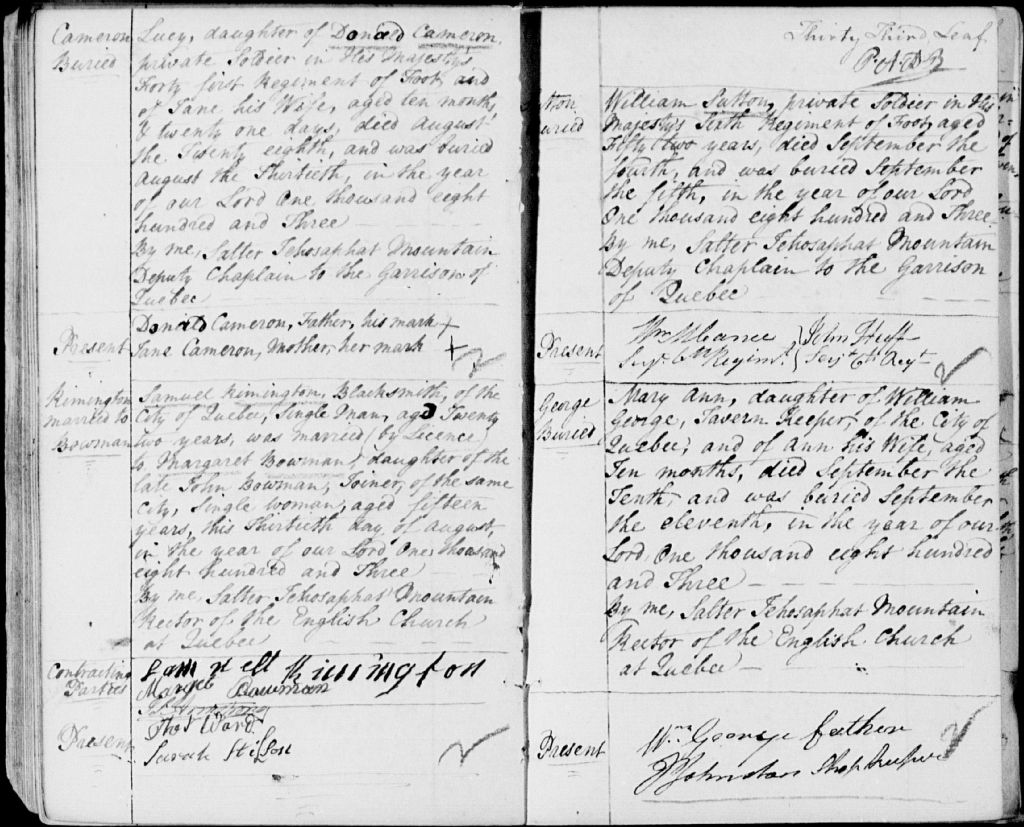 Cameron
Buried
Lucy, daughter of Donald Cameron,
private Soldier in His Majesty's
Forty first Regiment of Foot, and
of Jane his Wife, aged ten months,
& twenty one days, died August
the Twenty eighth, and was buried
August the Thirtieth, in the year
of our Lord One thousand eight
hundred and Three
By me, Salter Jehosaphat Mountain
Deputy Chaplain to the Garrison of
Quebec
Present
Donald Cameron, Father, his mark +
Jane Cameron, Mother, her mark +
Rimington
married to
Bowman
Samuel Rimington, Blacksmith, of the
City of Quebec, Single Man, aged Twenty
two years, was married (by Licence)
to Margaret Bowman, daughter of the
late John Bowman, Joiner, of the same
City, Single woman, aged fifteen
years, this Thirtieth day of August,
in the year of our Lord One thousand
eight hundred and Three
By me, Salter Jehosaphat Mountain
Rector of the English Church
at Quebec
Contracting
Parties
Samuell Rimington
Margt Bowman
Present
Thos Ward
Sarah
Thirty Third Leaf
utton
uried
William Sutton, private Soldier in His
Majesty's Sixth Regiment of Foot, aged
Fifty two years, died September the
fourth, and was buried September
the fifth, in the year of our Lord
One thousand eight hundred and Three
By me, Salter Jehosaphat Mountain
Deputy Chaplain to the Garrison
of Quebec
Present
Wm
Serjt 6th Regimt
John Huff
Serjt 6th Regt
George
Buried
Mary Ann, daughter of William
George, Tavern Keeper, of the City of
Quebec, and of Ann his Wife, aged
Ten months, died September the
Tenth, and was buried September
the eleventh, in the year of our
Lord One thousand eight hundred
and Three
By me, Salter Jehosaphat Mountain
Rector of the English Church
at Quebec
Present
Wm George father
Johnston Shop keeper